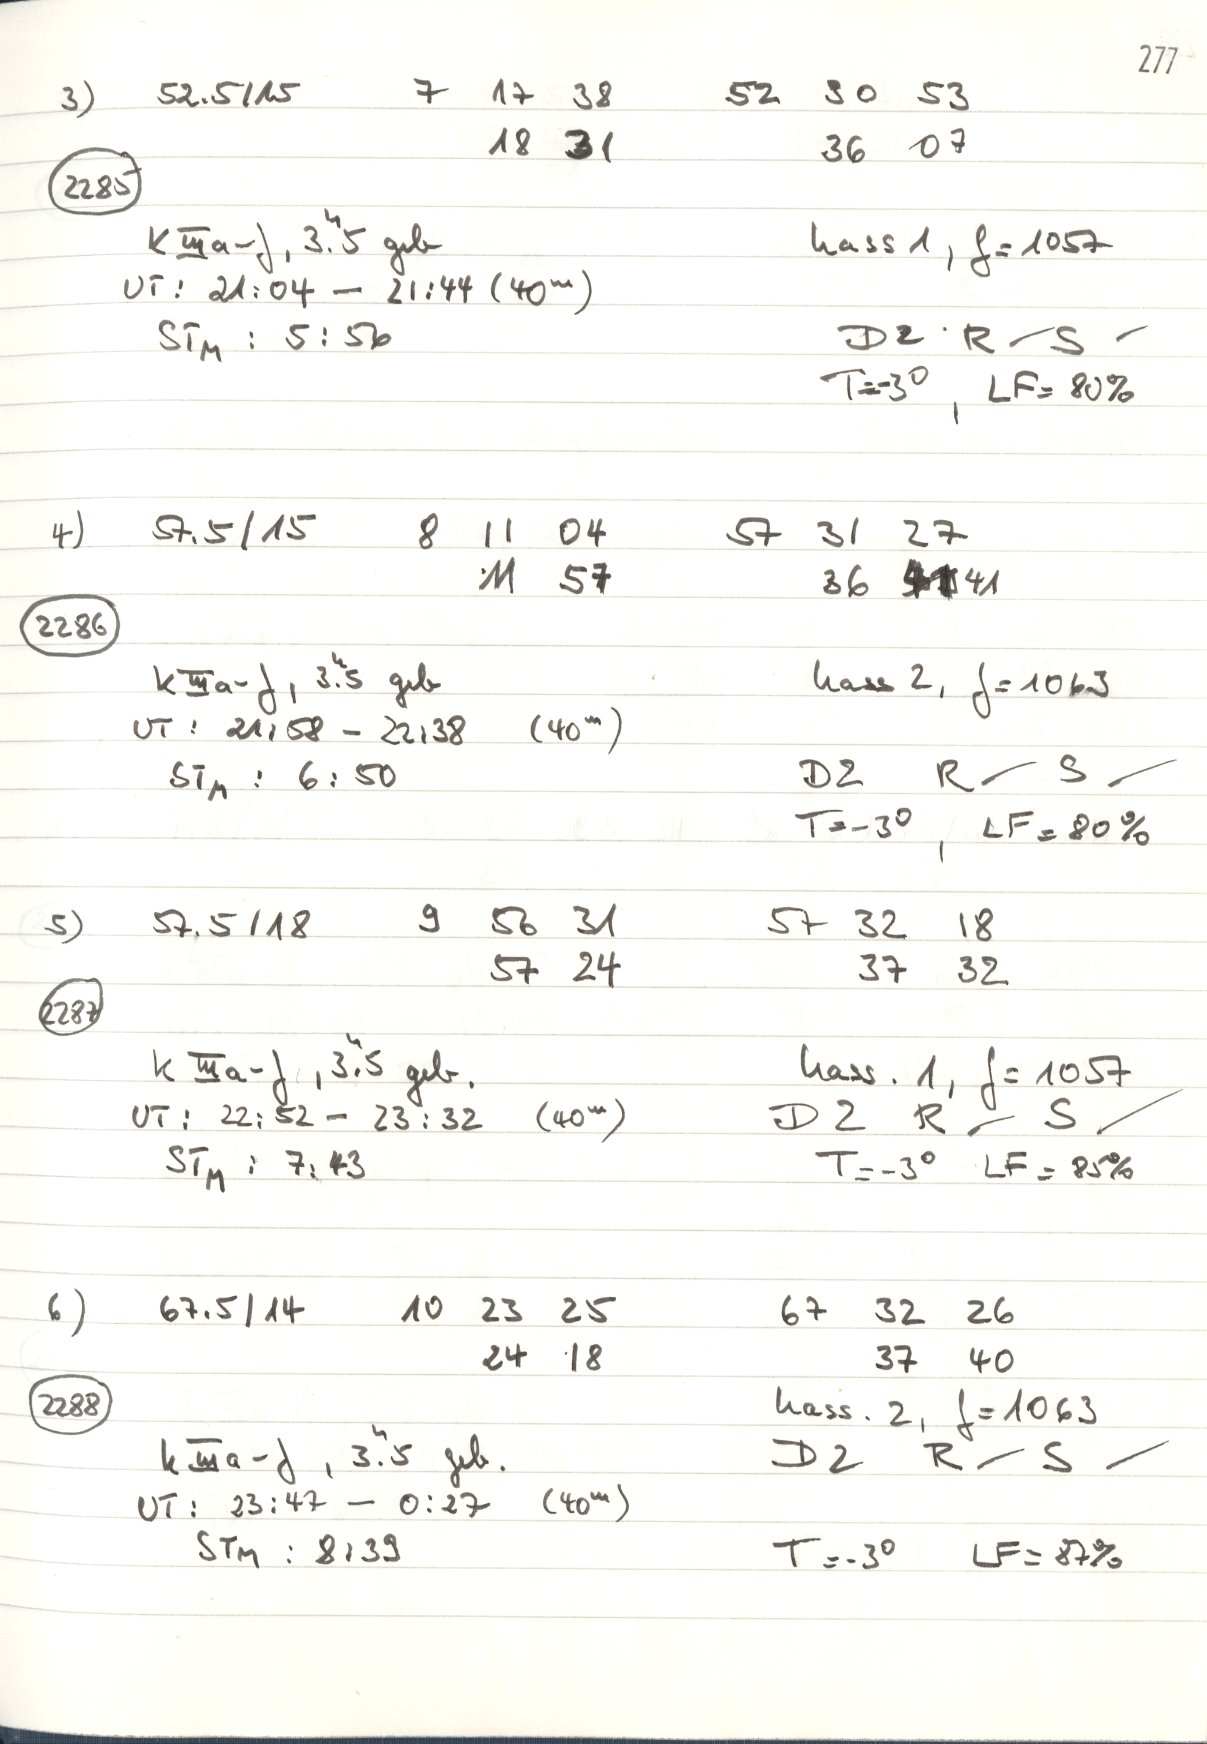 277
3) 52.5/15 7 17 38 52 30 53
18 31 36 07
2285
K IIIa-J, 3.ʰ5 geb Kass 1, f=1057
UT: 21:04 — 21:44 (40ᵐ)
STM : 5:56 D2 R — S —
T=-3°, LF=80%
4) 57.5/15 8 11 04 57 31 27
11 57 36 41
2286
K IIIa-J, 3.ʰ5 geb Kass 2, f=1063
UT: 21:58 — 22:38 (40ᵐ)
STM : 6:50 D2 R — S —
T=-3°, LF=80%
5) 57.5/18 9 56 31 57 32 18
57 24 37 32
2287
K IIIa-J, 3.ʰ5 geb. Kass. 1, f=1057
UT: 22:52 — 23:32 (40ᵐ) D2 R — S —
STM : 7:43 T=-3° LF=85%
6) 67.5/14 10 23 25 67 32 26
24 18 37 40
2288 Kass. 2, f=1063
K IIIa-J, 3.ʰ5 geb. D2 R — S —
UT: 23:47 — 0:27 (40ᵐ)
STM : 8:39 T=-3° LF=87%